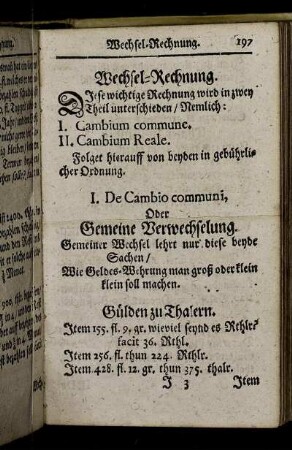 Wechsel-Rechnung. 197
Wechsel-Rechnung.
DIese wichtige Rechnung wird in zwey
Theil unterschieden / Nemlich:
I. Cambium commune.
II. Cambium Reale.
Folget hierauff von beyden in gebührli-
cher Ordnung.
I. De Cambio communi,
Oder
Gemeine Verwechselung.
Gemeiner Wechsel lehrt nur diese beyde
Sachen /
Wie Geldes-Wehrung man groß oder klein
klein soll machen.
Gülden zu Thalern.
Item 155. fl. 9. gr. wieviel seynd es Rthlr?
facit 36. Rthl.
Item 256. fl. thun 224. Rthlr.
Item 428. fl. 12. gr. thun 375. thalr.
J 3 Item